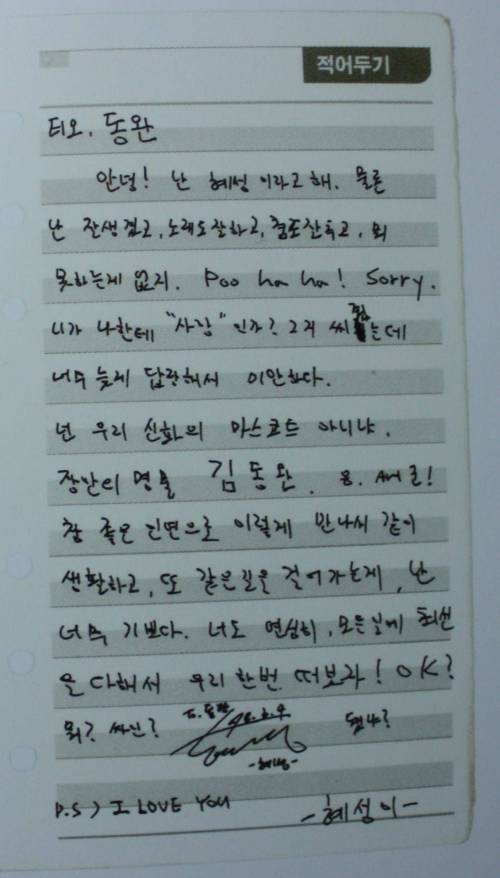 적어두기
티오. 동완
안녕! 난 혜성이라고 해. 물론
난 잘생겼고, 노래도 잘하고, 춤도 잘추고, 뭐
못하는게 없지. Poo ha ha! Sorry.
니가 나한테 "사랑" 인가? 그거 써줬는데
너무 늦게 답장해서 미안하다.
넌 우리 신화의 마스코트 아니냐.
장난의 명물 김동완.
참 좋은 인연으로 이렇게 만나서 같이
생활하고, 또 같은길을 걸어가는게, 난
너무 기쁘다. 너도 열심히, 모든일에 최선
을 다해서 우리 한번 떠보자! OK?
뭐? 싸인? To. 동완 됐냐?
-혜성-
P.S > I LOVE YOU -혜성이-